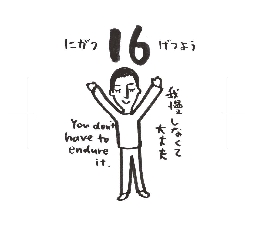 にがつ 16 げつよう
You don't
have to
endure
it.
我慢しなくて
大丈夫